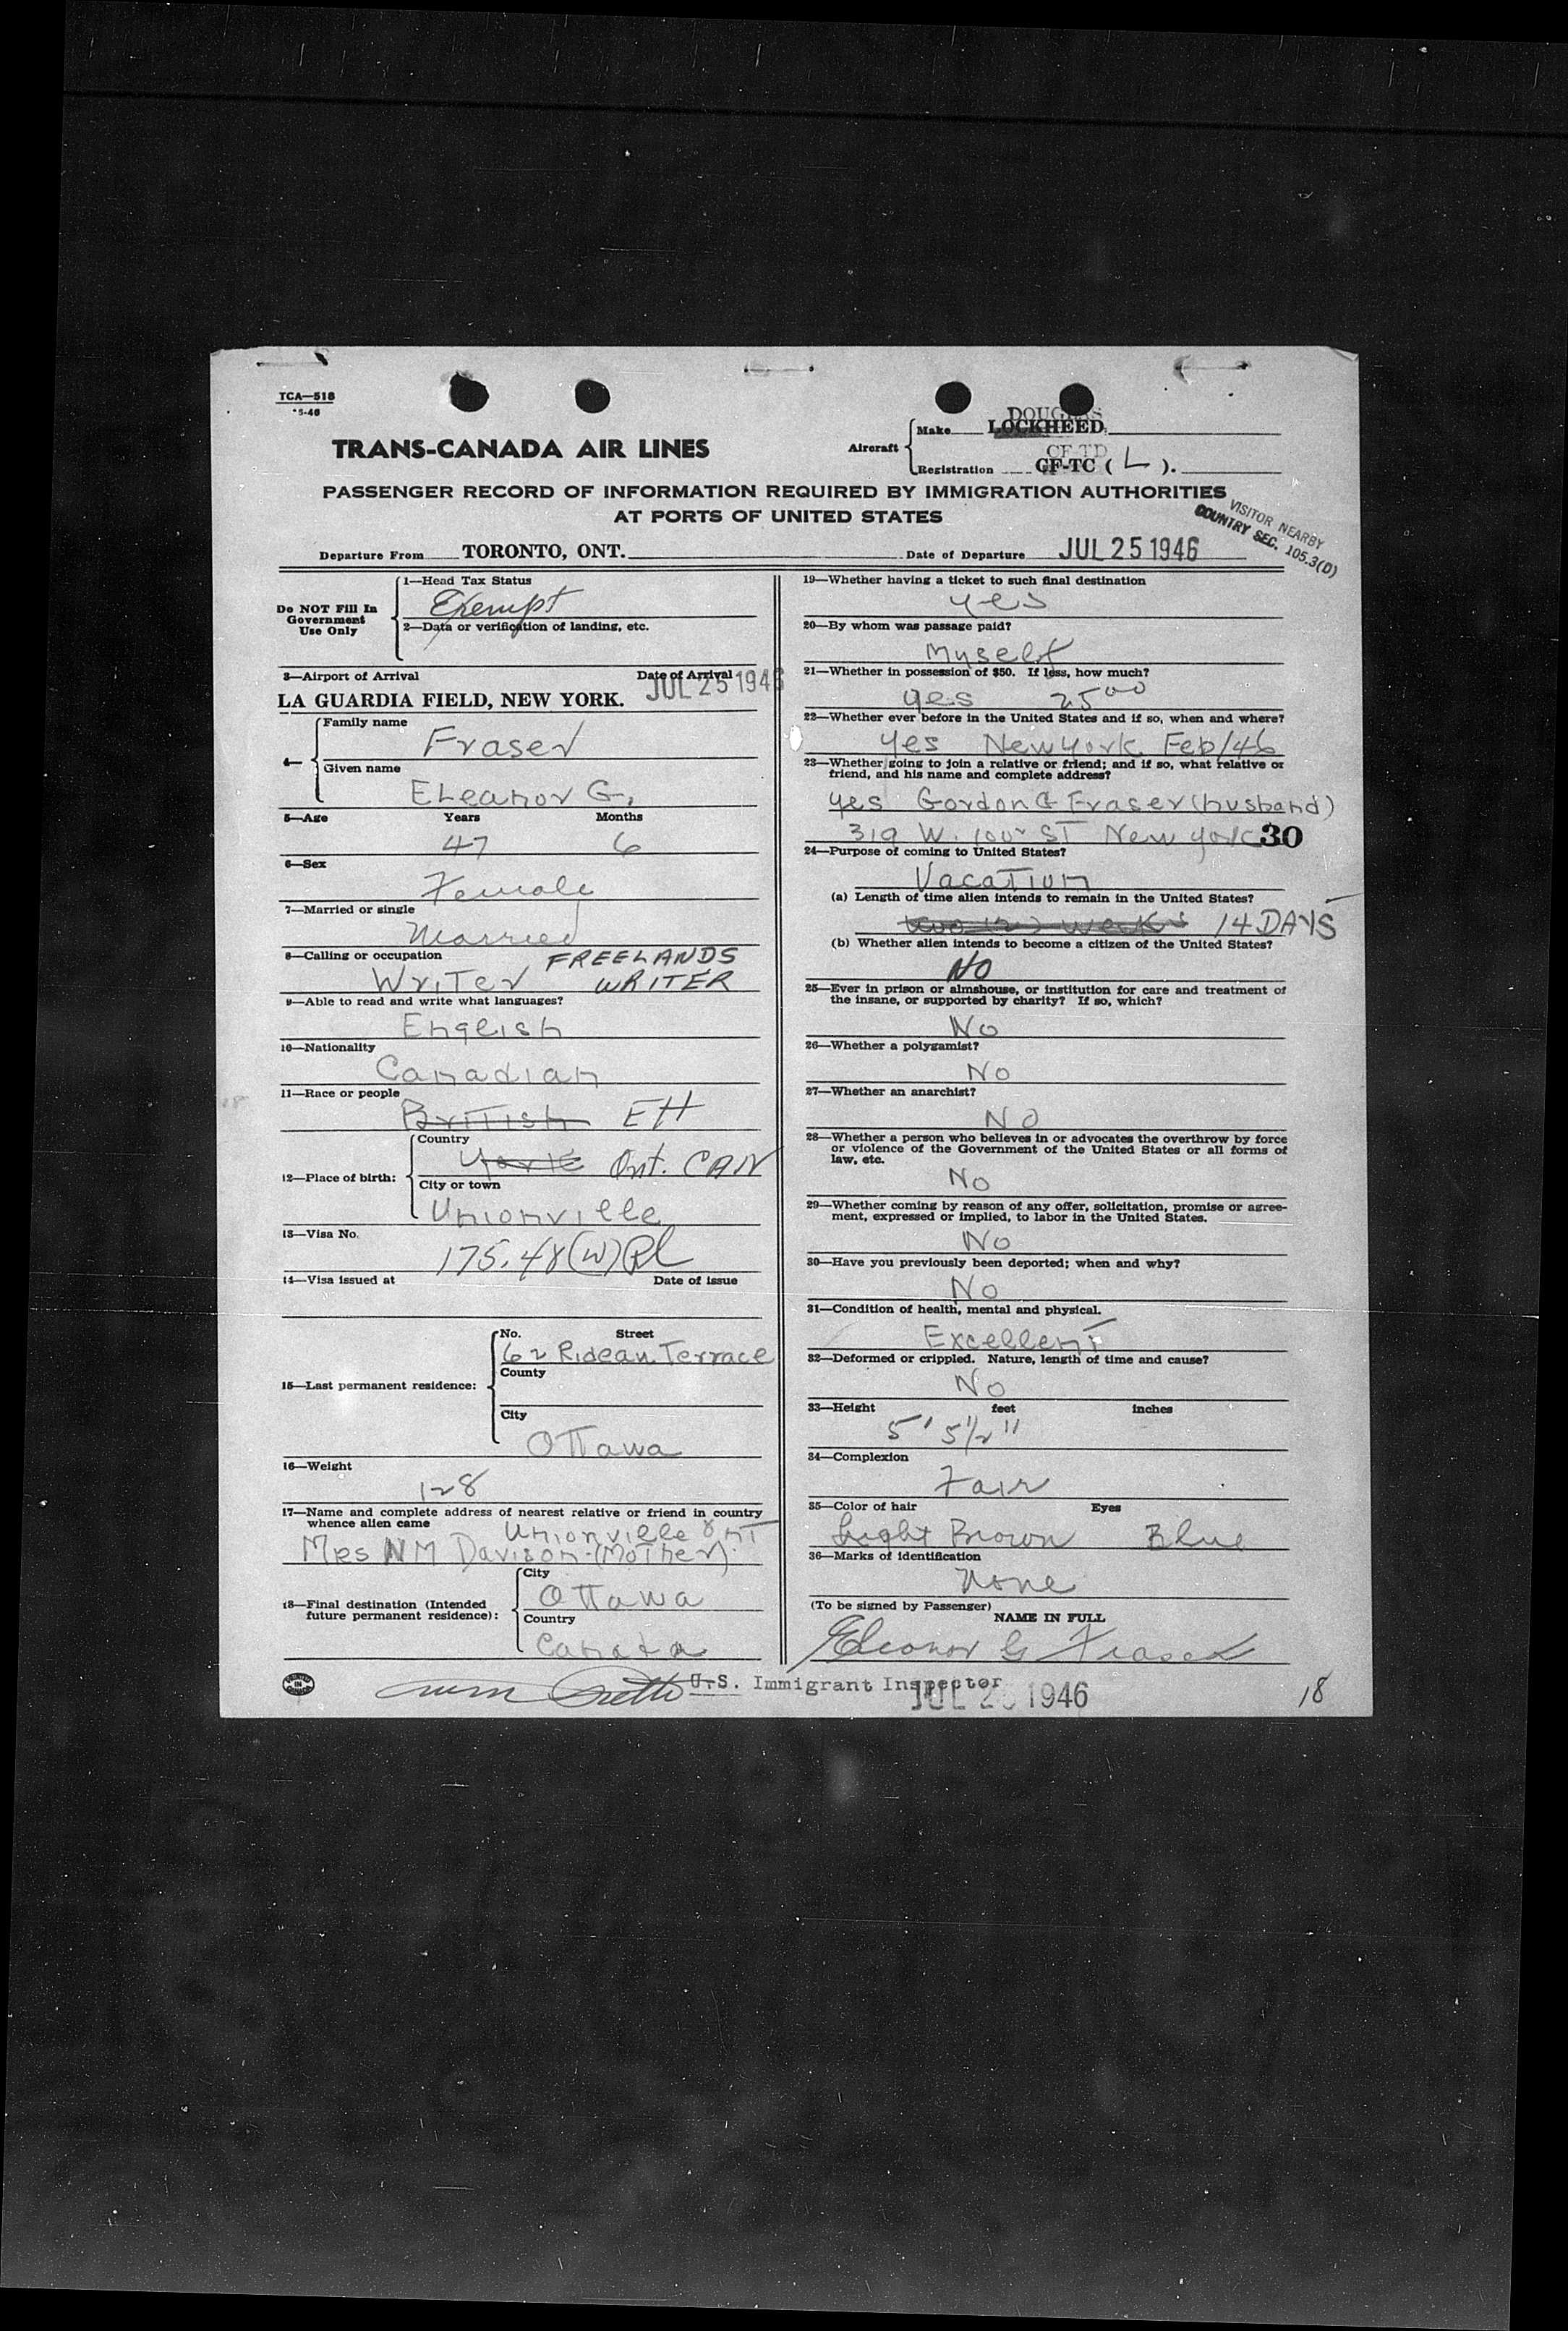 TCA—518
5-46
TRANS-CANADA AIR LINES
Aircraft
Make
DOUGLAS
LOCKHEED
Registration
CF-TD
CF-TC ( L ).
PASSENGER RECORD OF INFORMATION REQUIRED BY IMMIGRATION AUTHORITIES
AT PORTS OF UNITED STATES
VISITOR NEARBY
COUNTRY SEC. 105.3(D)
Departure From TORONTO, ONT. Date of Departure JUL 25 1946
Do NOT Fill In
Government
Use Only
1—Head Tax Status
Exempt
2—Data or verification of landing, etc.
3—Airport of Arrival Date of Arrival
LA GUARDIA FIELD, NEW YORK. JUL 25 1946
4—
Family name
Fraser
Given name
Eleanor G.
5—Age Years Months
47 6
6—Sex
Female
7—Married or single
Married
8—Calling or occupation FREELANDS
Writer WRITER
9—Able to read and write what languages?
English
10—Nationality
Canadian
11—Race or people
British EH
12—Place of birth:
Country
York Ont. CAN
City or town
Unionville
13—Visa No.
175.48(W)
14—Visa issued at Date of issue
15—Last permanent residence:
No. Street
62 Rideau Terrace
County
City
Ottawa
16—Weight
128
17—Name and complete address of nearest relative or friend in country
whence alien came Unionville ONT
Mrs N M Davison (Mother)
18—Final destination (Intended
future permanent residence):
City
Ottawa
Country
Canada
19—Whether having a ticket to such final destination
yes
20—By whom was passage paid?
Myself
21—Whether in possession of $50. If less, how much?
yes 25 00
22—Whether ever before in the United States and if so, when and where?
yes New York Feb/46
23—Whether going to join a relative or friend; and if so, what relative or
friend, and his name and complete address?
yes Gordon G Fraser (husband)
319 W. 100 ST New York 30
24—Purpose of coming to United States?
Vacation
(a) Length of time alien intends to remain in the United States?
two (2) weeks 14 DAYS
(b) Whether alien intends to become a citizen of the United States?
NO
25—Ever in prison or almshouse, or institution for care and treatment of
the insane, or supported by charity? If so, which?
No
26—Whether a polygamist?
No
27—Whether an anarchist?
No
28—Whether a person who believes in or advocates the overthrow by force
or violence of the Government of the United States or all forms of
law, etc.
No
29—Whether coming by reason of any offer, solicitation, promise or agree-
ment, expressed or implied, to labor in the United States.
No
30—Have you previously been deported; when and why?
No
31—Condition of health, mental and physical.
Excellent
32—Deformed or crippled. Nature, length of time and cause?
No
33—Height feet inches
5' 5½"
34—Complexion
Fair
35—Color of hair Eyes
Light Brown Blue
36—Marks of identification
None
(To be signed by Passenger)
NAME IN FULL
Eleanor G Fraser
U.S. Immigrant Inspector
JUL 25 1946
18